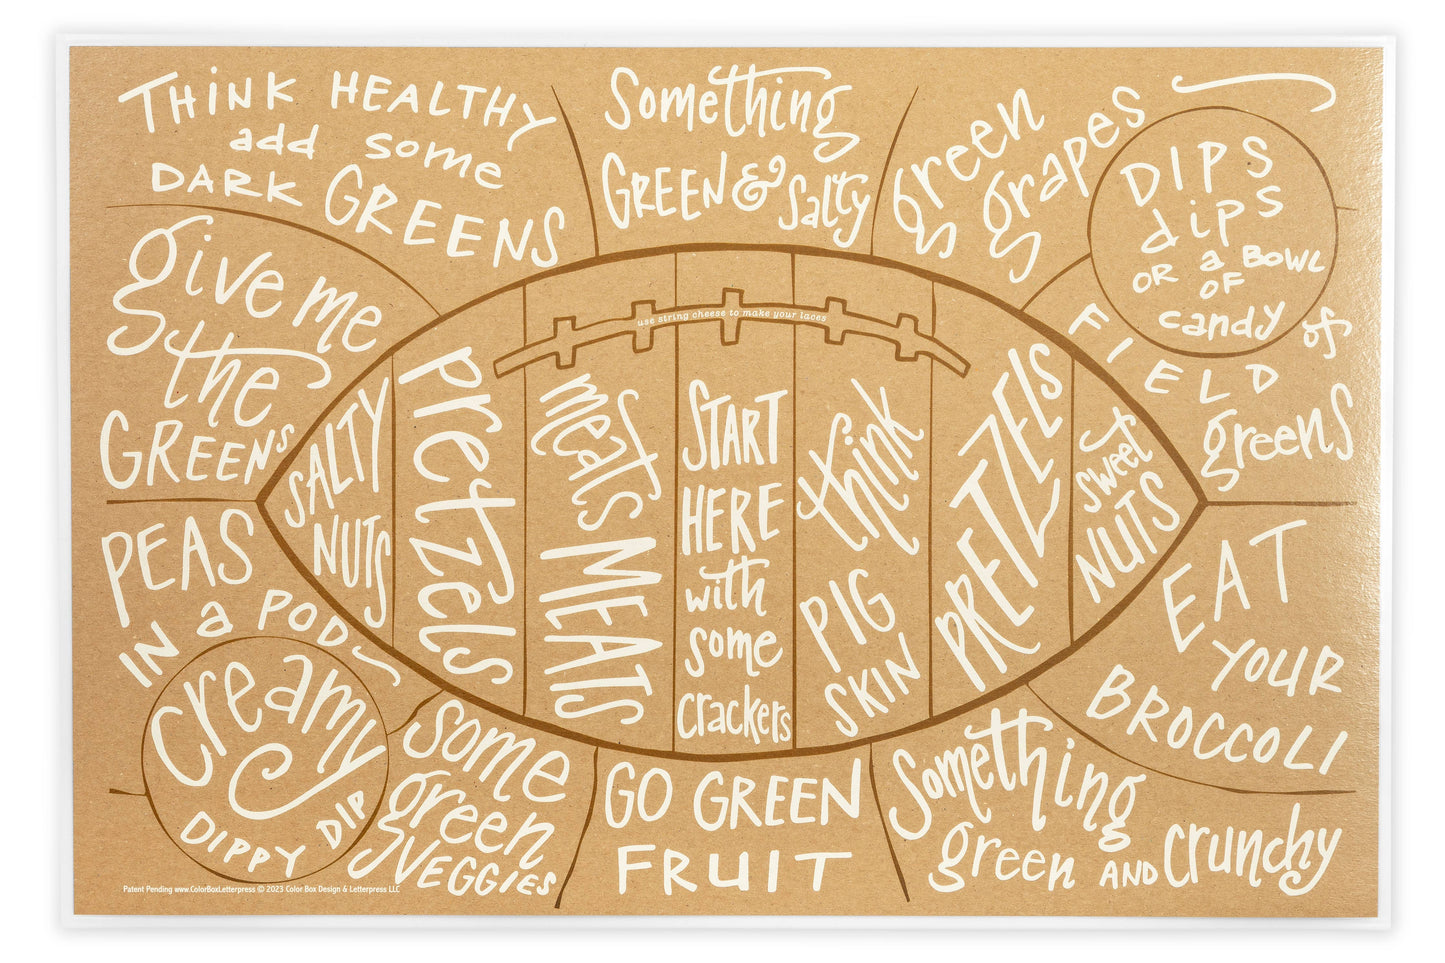 THINK HEALTHY
add some
DARK GREENS
Something
GREEN & Salty
green
grapes
DIPS
dips
OR a BOWL
OF
candy
give me
the
GREENS
use string cheese to make your laces
FIELD of
greens
SALTY
NUTS
Pretzels
meats
MEATS
START
HERE
with
some
crackers
think
PIG
SKIN
PRETZELS
sweet
NUTS
PEAS
IN a POD
Creamy
DIPPY DIP
some
green
VEGGIES
GO GREEN
FRUIT
Something
green AND crunchy
EAT
YOUR
BROCCOLI
Patent Pending www.ColorBoxLetterpress © 2023 Color Box Design & Letterpress LLC